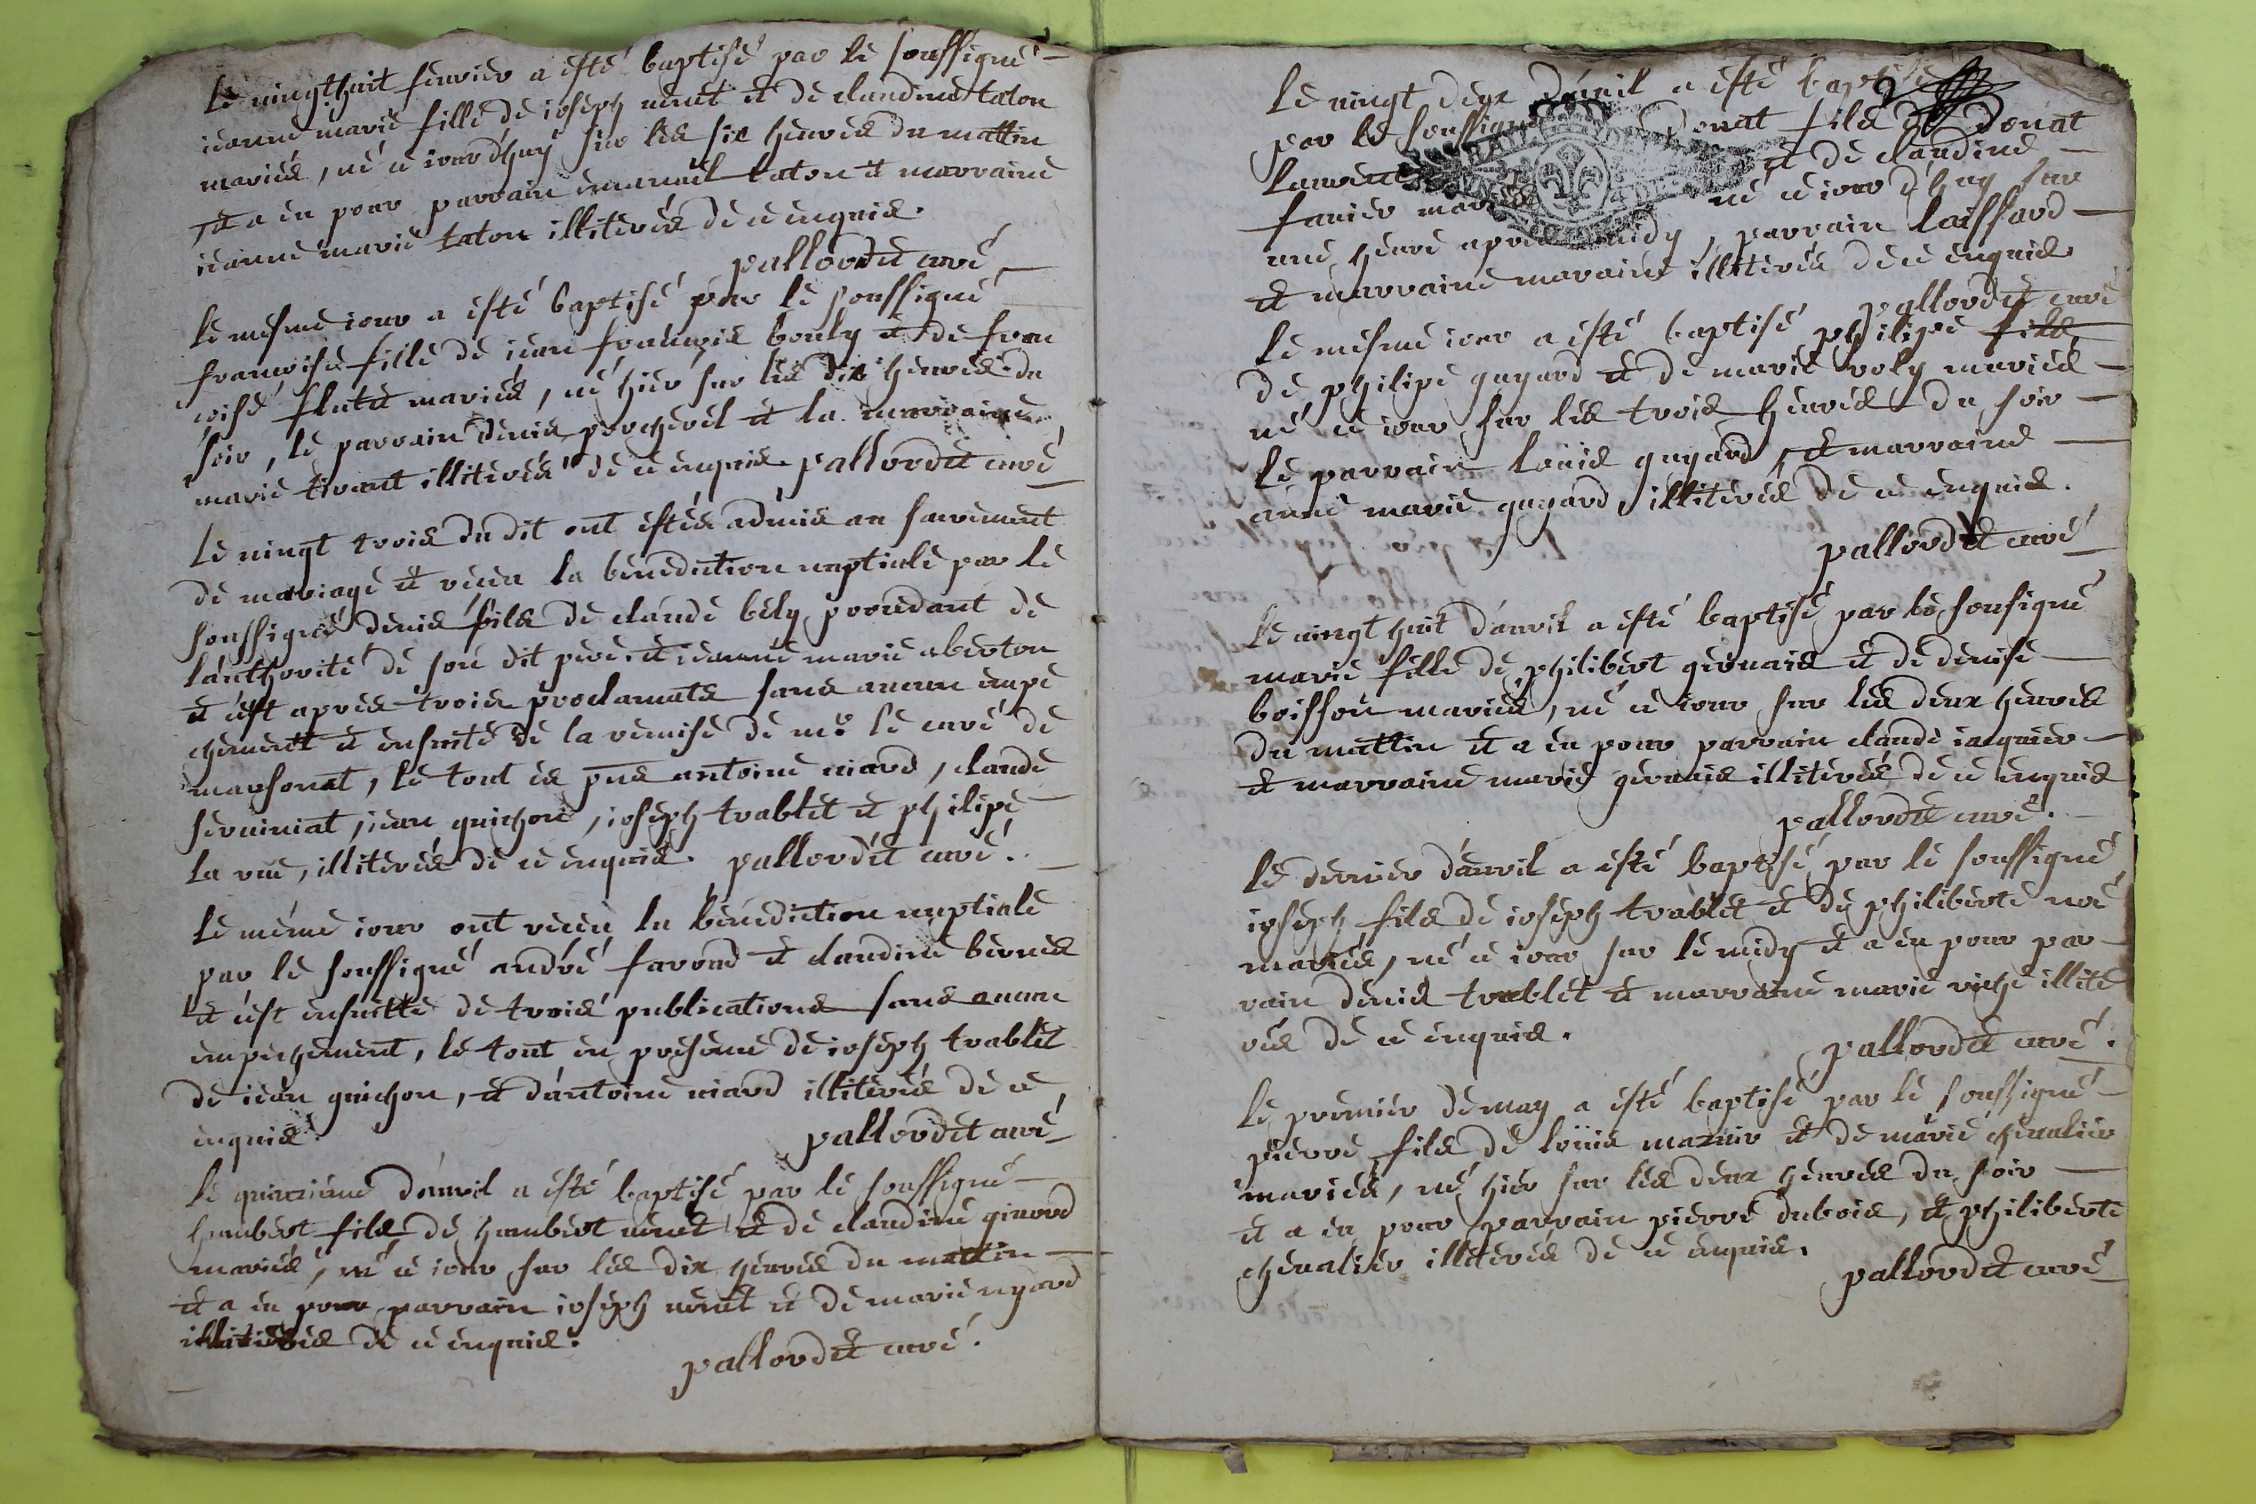 Le vingt huit feuvier a esté baptisé par le soussigné
ieanne marie fille de ioseph niret et de claudine taton
mariés, né ce iourd'huy sur les six heures du mattin
et a eu pour parrain emanuel taton et marraine
ieanne marie taton illiterés de ce enquis.
pallordet curé
Le mesme iour a esté baptisé par le soussigné
francoise fille de iean francois bouly et de fran
coise flutet mariés, né hier sur les dix heures du
soir, le parrain denis porcherel et la marraine
marie tirant illiterés de ce enquis pallordet curé
Le vingt trois dudit ont estés admis au sacrement
de mariage et receu la benediction nuptiale par le
soussigné denis fils de claude bely procedant de
l'aucthorité de son dit pere et ieanne marie aberton
et c'est apres trois proclamats sans aucun empe
chement et ensuite de la remise de mr le curé de
marsonat, le tout es pns antoine niard, claude
seraimiat, iean guichon, ioseph trablet et philipe
la rue, illiterés de ce enquis. pallordet curé.
Le même iour ont receu la benediction nuptiale
par le soussigné andré farrad et claudine bernés
et c'est ensuitte de trois publications sans aucun
empechement, le tout en presence de ioseph trablet
de iean guichon, et d'antoine niard illiterés de ce
enquis. pallordet curé
Le quinzieme d'auril a esté baptisé par le soussigné
humbert fils de humbert niret et de claudine girord
mariés, né ce iour sur les dix heures du mattin
et a eu pour parrain ioseph niret et de marie nyard
illiterés de ce enquis.
pallordet curé.
Le vingt deux d'auril a esté baptisé
par le soussigné donat fils de donat
et de claudine
fauier mariés né ce iour d'huy sur
une heure apres midy, parrain
et marraine illiterés de ce enquis
pallordet curé
Le mesme iour a esté baptisé philipe fils
de philipe guyard et de marie roly mariés
né ce iour sur les trois heures du soir
le parrain loüis guyard, et marraine
anne marie guyard illiterés de ce enquis.
pallordet curé
Le vingt huit d'auril a esté baptisé par le sousigné
marie fille de philibert geruais et de denise
boisson mariés, né ce iour sur les deux heures
du mattin et a eu pour parrain claude iacquier
et marraine marie geruais illiterés de ce enquis
pallordet curé.
Le dernier d'auril a esté baptisé par le soussigné
ioseph fils de ioseph trablet et de philiberte noé
mariés, né ce iour sur le midy et a eu pour par
rain denis trablet et marraine marie riche illite
rés de ce enquis.
pallordet curé.
Le premier de may a esté baptisé par le soussigné
pierre fils de loüis mazuir et de marie cheualier
mariés, né hier sur les deux heures du soir
et a eu pour parrain pierre dubois, et philiberte
cheualier illiterés de ce enquis.
pallordet curé